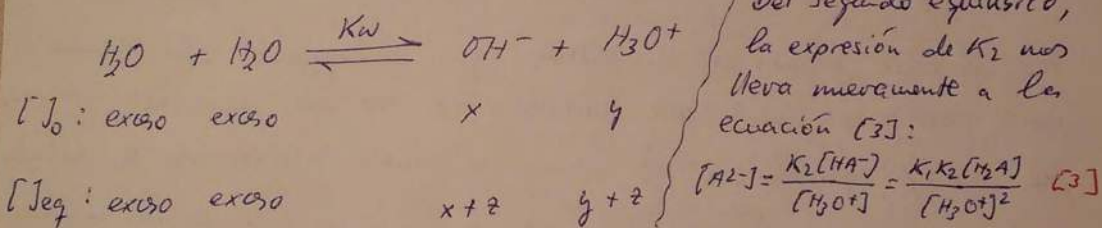 H₂O + H₂O ⇌ OH⁻ + H₃O⁺
Kw
[ ]₀ : exceso exceso x y
[ ]eq : exceso exceso x+z y+z
Del segundo equilibrio,
la expresión de K₂ nos
lleva nuevamente a la
ecuación [3]:
[A²⁻] = K₂[HA⁻] / [H₃O⁺] = K₁K₂[H₂A] / [H₃O⁺]² [3]